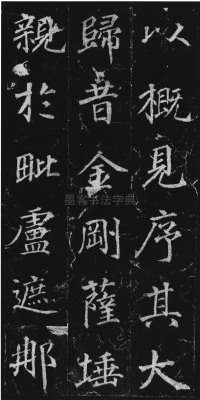 以概見序其大
歸昔金剛薩埵
親於毗盧遮那
墨客书法字典